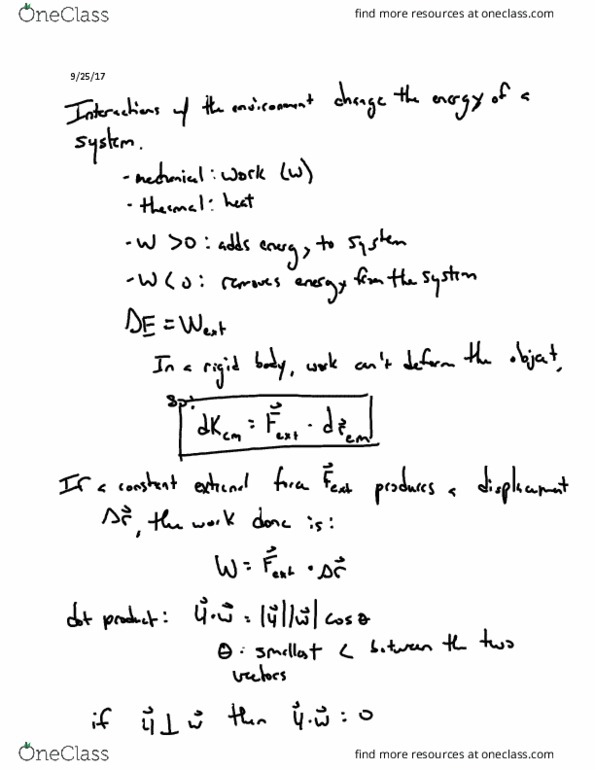 OneClass
find more resources at oneclass.com
9/25/17
Interactions w/ the environment change the energy of a
system.
- mechanical: work (W)
- thermal: heat
- W > 0 : adds energy to system
- W < 0 : removes energy from the system
ΔE = W_ext
In a rigid body, work can't deform the object,
so:
dK_cm = F⃗_ext · dr⃗_cm
If a constant external force F⃗_ext produces a displacement
Δr⃗, the work done is:
W = F⃗_ext · Δr⃗
dot product: u⃗·w⃗ = |u⃗||w⃗| cos θ
θ : smallest < between the two
vectors
if u⃗ ⊥ w⃗ then u⃗·w⃗ = 0
OneClass
find more resources at oneclass.com